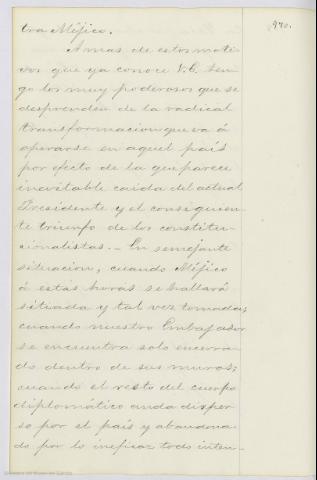 970.
tra Méjico.
Amas de estos moti-
vos que ya conoce V.E. ten-
go los muy poderosos que se
desprenden de la radical
transformacion que va á
operarse en aquel país
por efecto de la que parece
inevitable caida del actual
Presidente y el consiguien-
te triunfo de los constitu-
cionalistas.- En semejante
situacion, cuando Méjico
á estas horas se hallará
sitiada y tal vez tomada;
cuando nuestro Embajador
se encuentra solo encerra-
do dentro de sus muros;
cuando el resto del cuerpo
diplomático anda disper-
so por el país y abandona-
do por lo ineficaz todo inten-